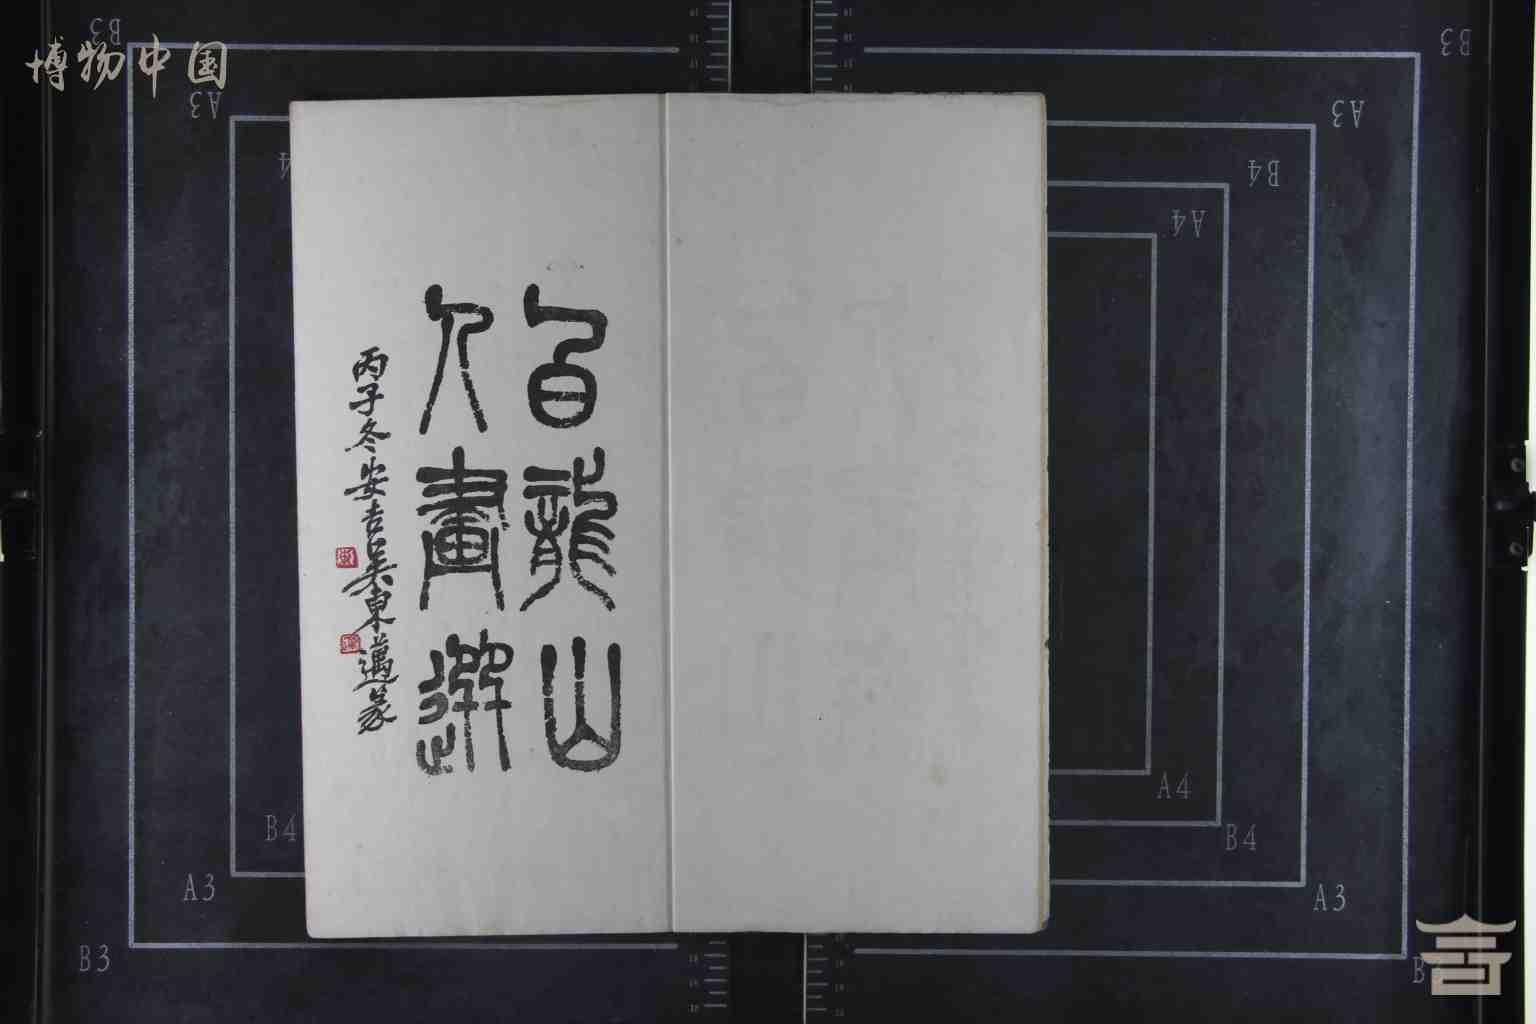 博物中国
白龍山
人畫選
丙子冬安吉吳東邁篆
B3
A3
B3
A3
B4
A4
B4
A3
B3
A4
B4
A3